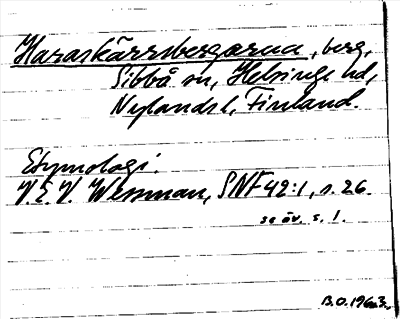 Haraskärrsbergarna, berg,
Sibbå sn, Helsinge hd,
Nylands l, Finland.
Etymologi.
V.E.V. Wessman, SNF 42:1, s. 26.
se äv. s. 1.
B.O. 1963.